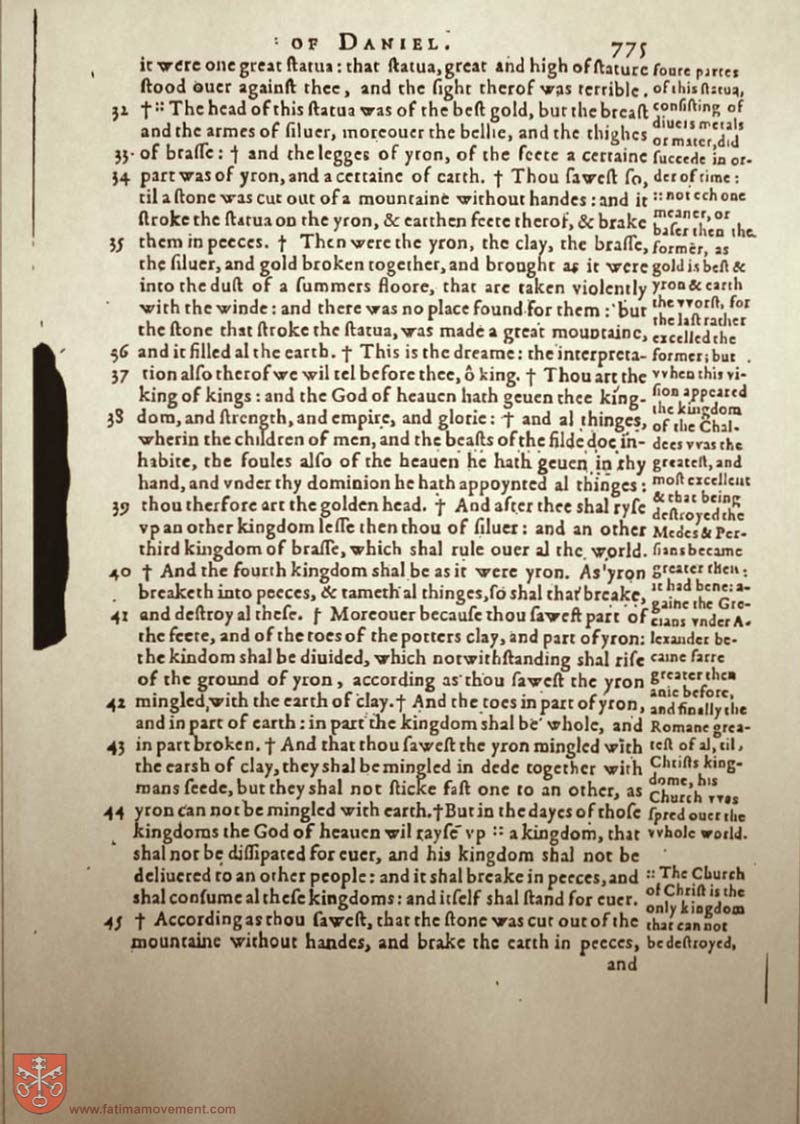 OF DANIEL.
775
it were one great ſtatua: that ſtatua, great and high of ſtature
ſtood ouer againſt thee, and the ſight therof was terrible.
32 † :: The head of this ſtatua was of the beſt gold, but the breaſt
and the armes of ſiluer, moreouer the bellie, and the thighes
33 of braſſe: † and the legges of yron, of the feete a certaine
34 part was of yron, and a certaine of earth. † Thou ſaweſt ſo,
til a ſtone was cut out of a mountaine without handes: and it
ſtroke the ſtatua on the yron, & earthen feete therof, & brake
35 them in peeces. † Then were the yron, the clay, the braſſe,
the ſiluer, and gold broken together, and brought as it were
into the duſt of a ſummers floore, that are taken violently
with the winde: and there was no place found for them: but
the ſtone that ſtroke the ſtatua, was made a great mountaine,
36 and it filled al the earth. † This is the dreame: the interpreta-
37 tion alſo therof we wil tel before thee, ô king. † Thou art the
king of kings: and the God of heauen hath geuen thee king-
38 dom, and ſtrength, and empire, and glorie: † and al thinges,
wherin the children of men, and the beaſts of the filde doe in-
habite, the foules alſo of the heauen he hath geuen in thy
hand, and vnder thy dominion he hath appoynted al thinges:
39 thou therfore art the golden head. † And after thee shal ryſe
vp an other kingdom leſſe then thou of ſiluer: and an other
third kingdom of braſſe, which shal rule ouer al the world.
40 † And the fourth kingdom shal be as it were yron. As yron
breaketh into peeces, & tameth al thinges, ſo shal that breake,
41 and deſtroy al theſe. † Moreouer becauſe thou ſaweſt part of
the feete, and of the toes of the potters clay, and part of yron:
the kindom shal be diuided, which notwithſtanding shal riſe
of the ground of yron, according as thou ſaweſt the yron
42 mingled with the earth of clay. † And the toes in part of yron,
and in part of earth: in part the kingdom shal be whole, and
43 in part broken. † And that thou ſaweſt the yron mingled with
the earsh of clay, they shal be mingled in dede together with
mans ſeede, but they shal not ſticke faſt one to an other, as
44 yron can not be mingled with earth. † But in the dayes of thoſe
kingdoms the God of heauen wil rayſe vp :: a kingdom, that
shal not be diſſipated for euer, and his kingdom shal not be
deliuered to an other people: and it shal breake in peeces, and
shal conſume al theſe kingdoms: and itſelf shal ſtand for euer.
45 † According as thou ſaweſt, that the ſtone was cut out of the
mountaine without handes, and brake the earth in peeces,
and
foure partes
of this ſtatua,
conſiſting of
diuers metals
or mater, did
ſuccede in or-
der of time:
:: not ech one
meaner, or
baſer then the
former, as
gold is beſt &
yron & earth
the vvorſt, for
the laſt rather
excelled the
former; but
vvhen this vi-
ſion appeared
the kingdom
of the Chal-
dees vvas the
greateſt, and
moſt excellent
& that being
deſtroyed the
Medes & Per-
ſians became
greater then
it had bene: a-
gaine the Gre-
cians vnder A-
lexander be-
came farre
greater then
anie before,
and finally the
Romane grea-
teſt of al, til,
Chriſts king-
dome, his
Church vvas
ſpred ouer the
vvhole world.
:: The Church
of Chriſt is the
only kingdom
that can not
be deſtroyed,
www.fatimamovement.com